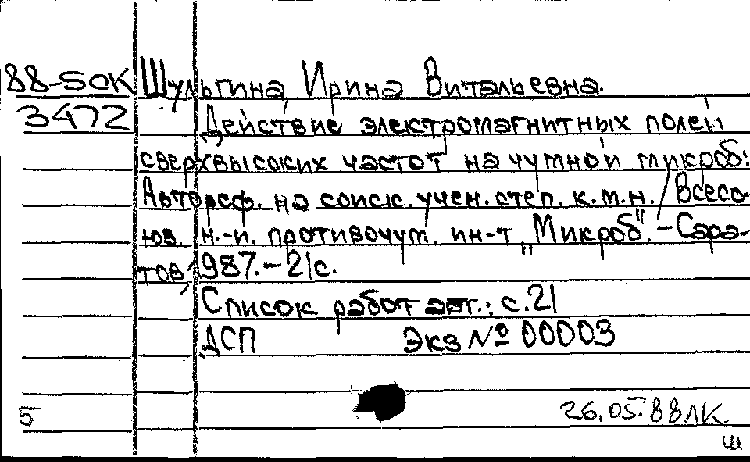 88-50К Шульгина, Ирина Витальевна.
3472 Действие электромагнитных полей
сверхвысоких частот на чумной микроб:
Автореф. на соиск. учен. степ. к.м.н. / Всесо-
юз. н.-и. противочум. ин-т „Микроб". - Сара-
тов, 1987. - 21 с.
Список работ авт.: с. 21
ДСП Экз № 00003
5 26.05.88 ЛК.
Ш